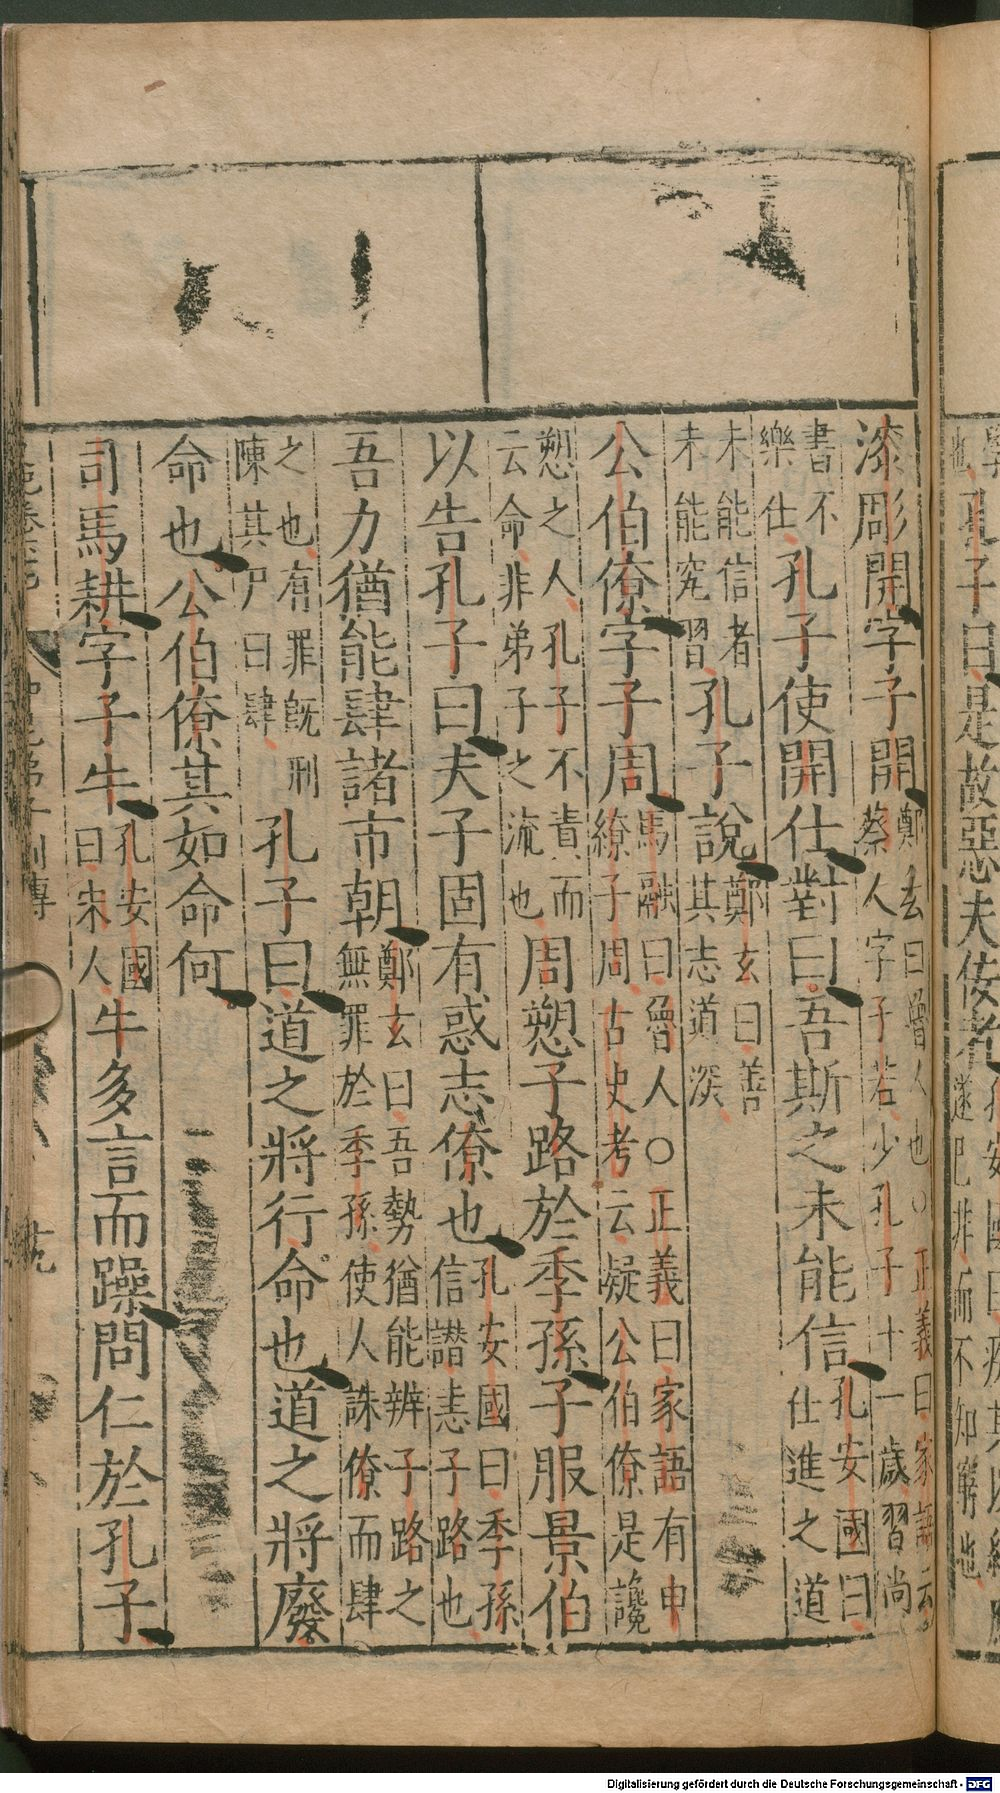 孔子曰是故惡夫佞者
漆彫開字子開鄭玄曰魯人也○正義曰家語云蔡人字子若少孔子十一歲習尚
書不樂仕孔子使開仕對曰吾斯之未能信孔安國曰仕進之道
未能信者未能究習孔子說鄭玄曰善其志道深
公伯僚字子周馬融曰魯人○正義曰家語有申繚子周古史考云疑公伯僚是讒
愬之人孔子不責而云命非弟子之流也周愬子路於季孫子服景伯
以告孔子曰夫子固有惑志僚也孔安國曰季孫信譖恚子路也
吾力猶能肆諸市朝鄭玄曰吾勢猶能辨子路之無罪於季孫使人誅僚而肆
之也有罪既刑陳其尸曰肆孔子曰道之將行命也道之將廢
命也公伯僚其如命何
司馬耕字子牛孔安國曰宋人牛多言而躁問仁於孔子
Digitalisierung gefördert durch die Deutsche Forschungsgemeinschaft - DFG